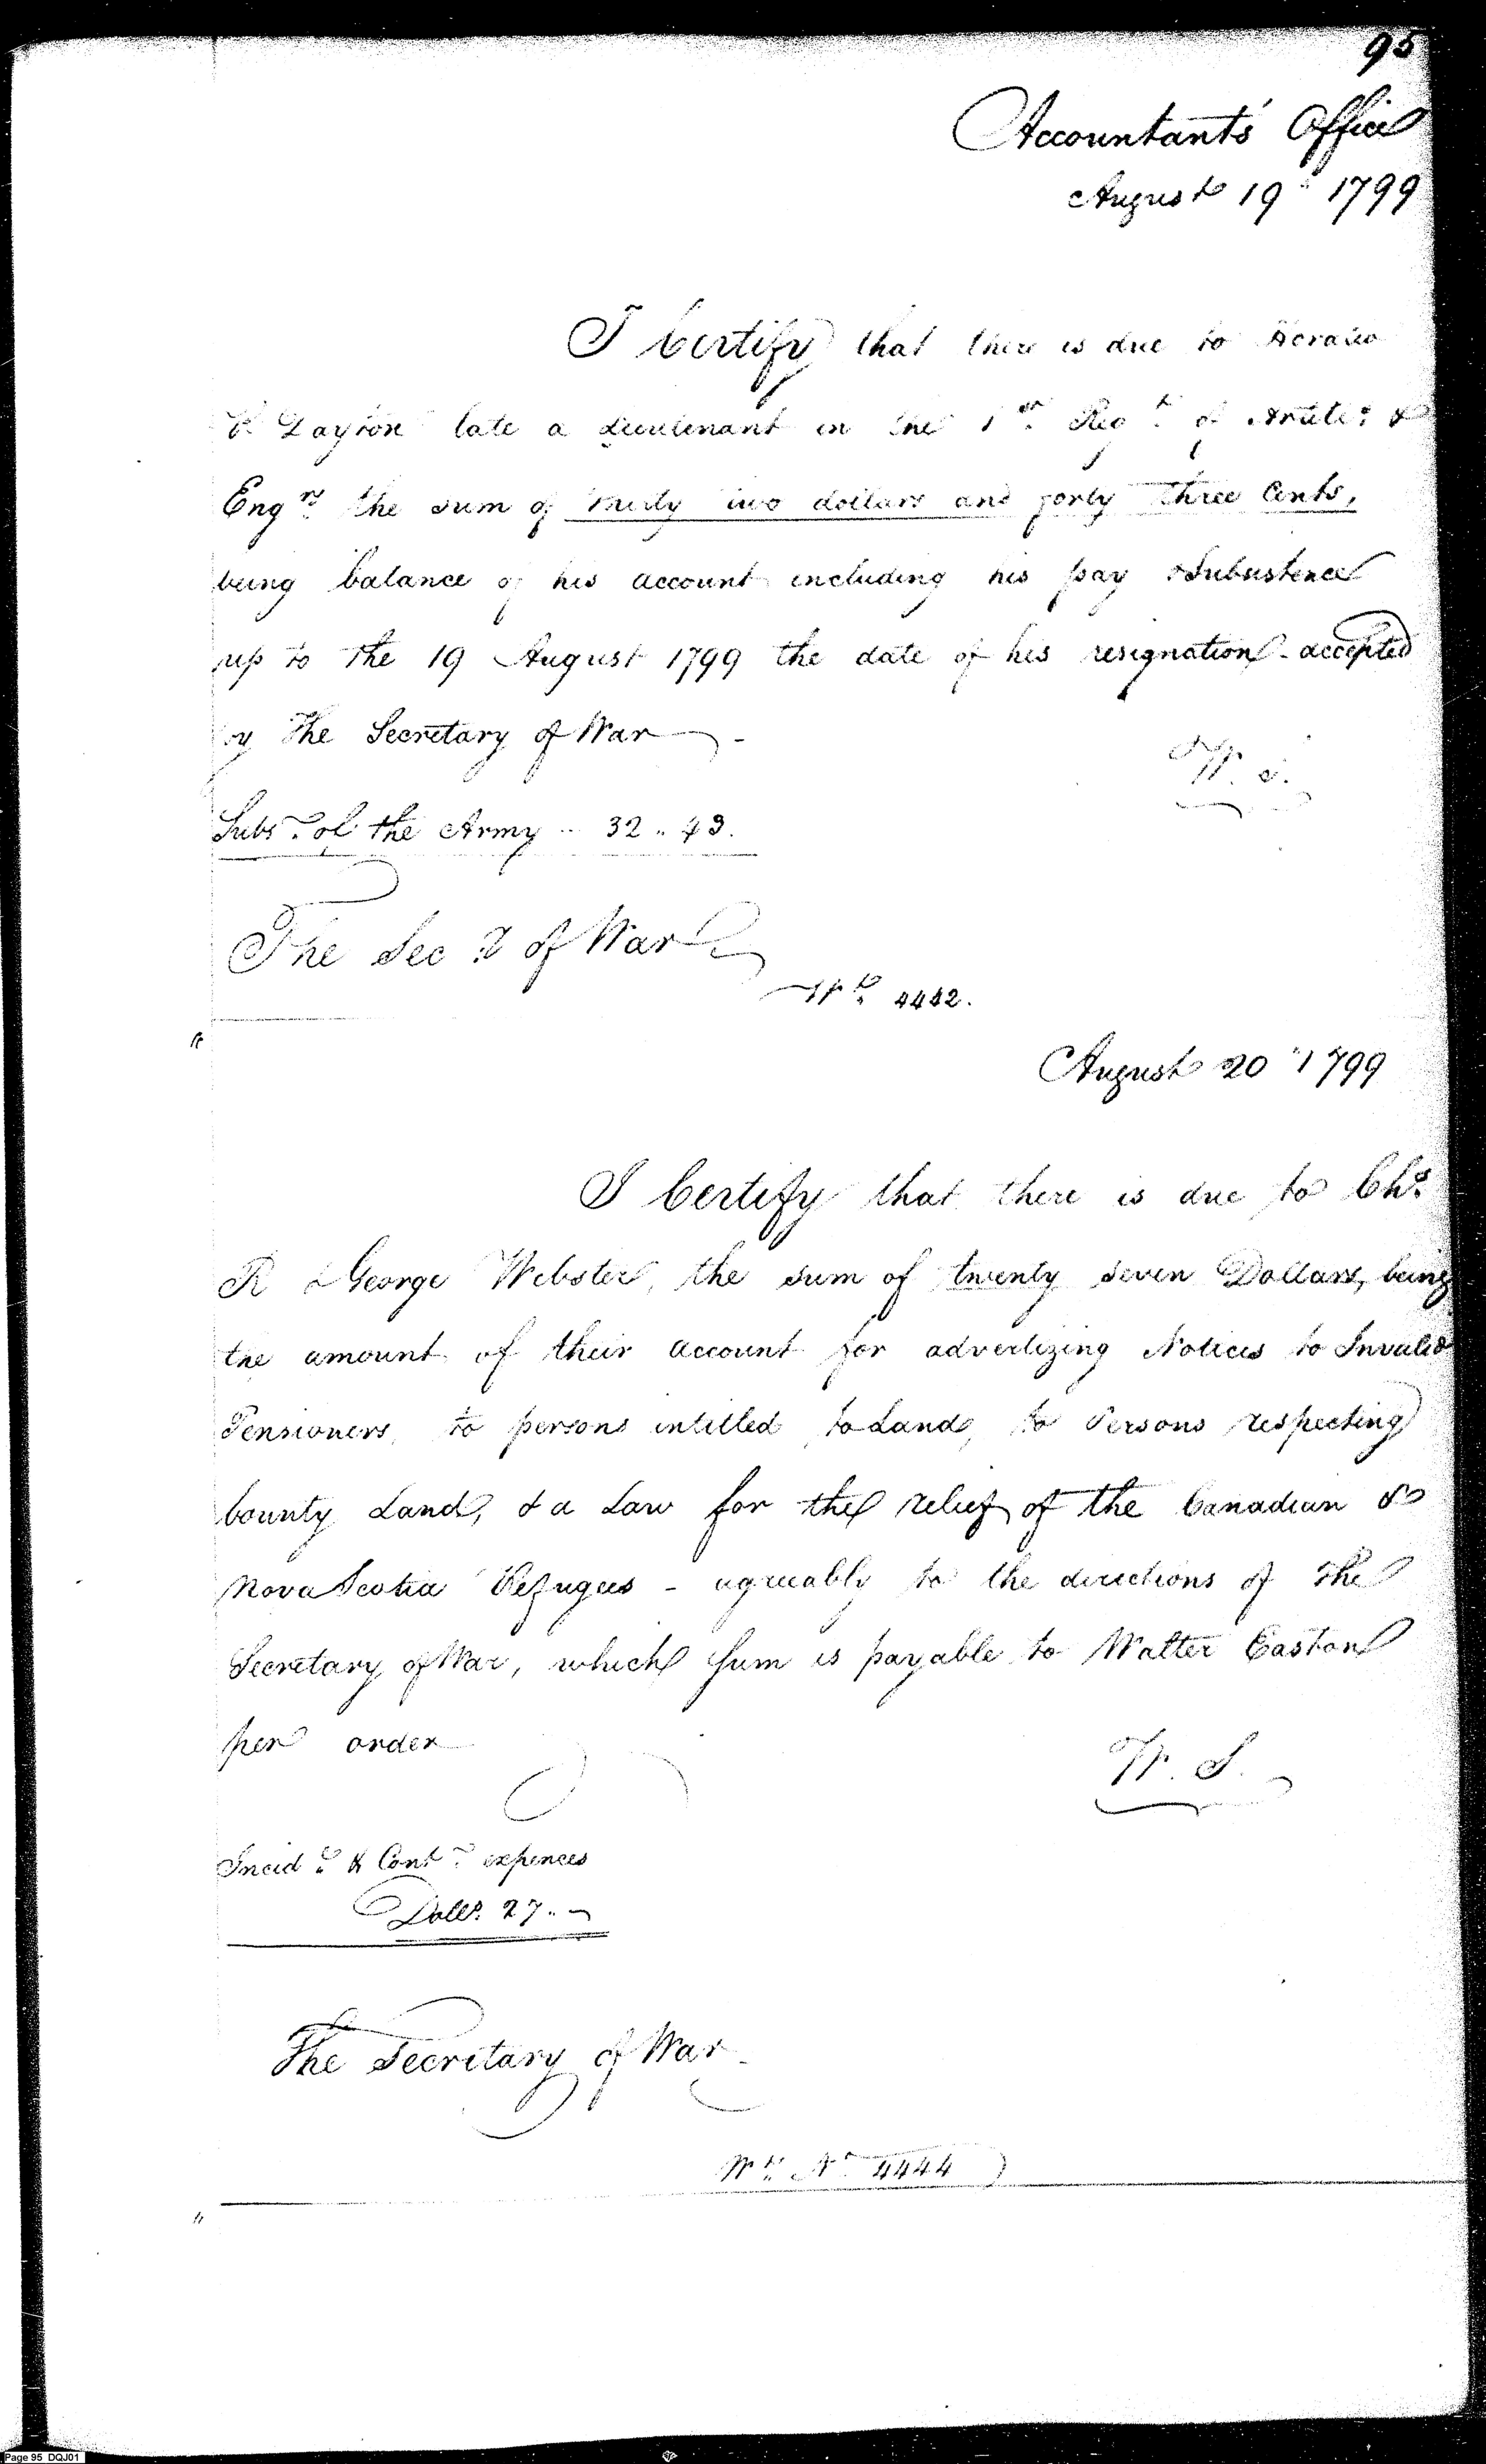 95
Accountants Office
August 19th 1799
I Certify that there is due to Horatio
R. Dayton late a Lieutenant in the 1st Regt. of Artile. &
Engrs. the sum of thirty two dollars and forty three Cents,
being balance of his account including his pay & Subsistence
up to the 19 August 1799 the date of his resignation accepted
by the Secretary of War
W. S.
Subs. of the Army .. 32 .. 43.
The Secy of War
Wt. 4442.
August 20th 1799
I Certify that there is due to Chs.
R & George Webster, the sum of twenty seven Dollars, being
the amount of their account for advertizing Notices to Invalid
Pensioners, to persons intitled to Land, to Persons respecting
bounty Land, & a Law for the relief of the Canadian &
Nova Scotia Refugees - agreeably to the directions of the
Secretary of War, which sum is payable to Walter Easton
per order
W. S.
Incidt. & Contt. expences
Dolls. 27 ..
The Secretary of War
Wt. No. 4444
Page 95 DQJ01